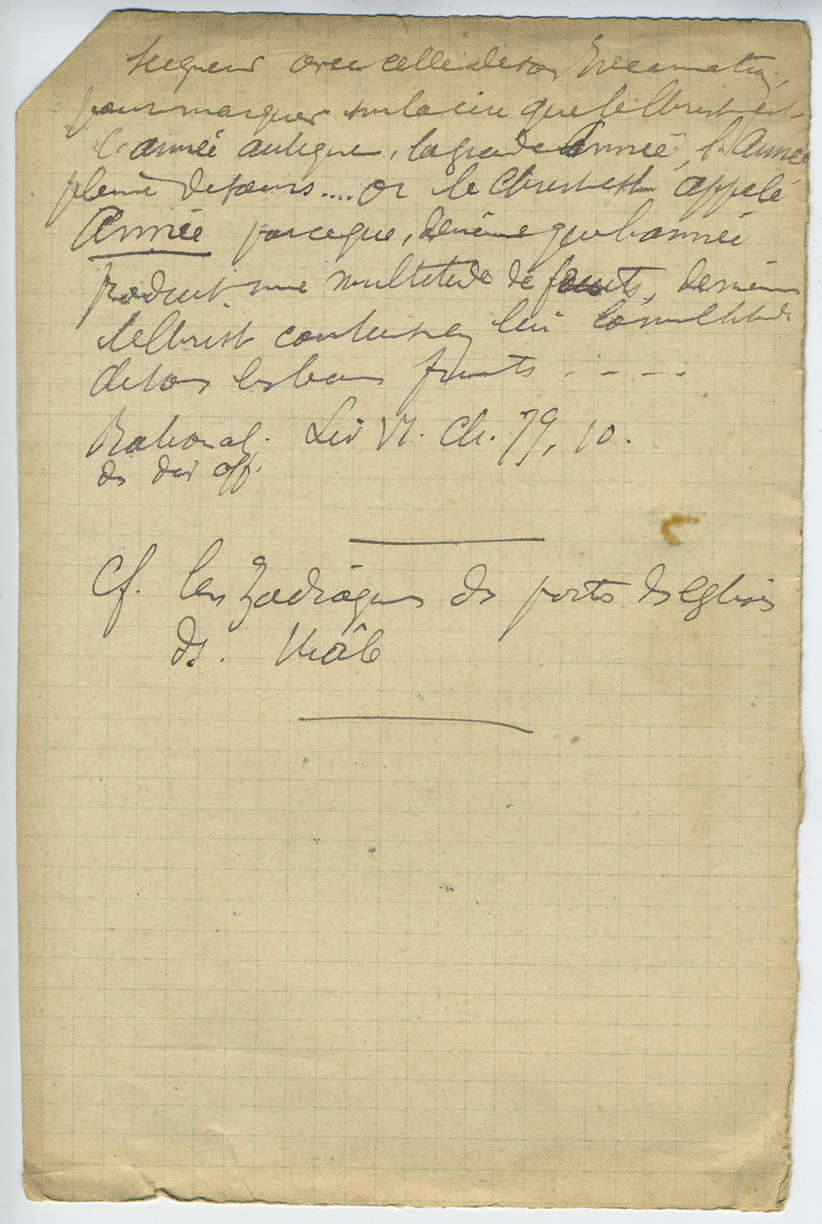 Seigneur avec celle de son Incarnation,
pour marquer sur la cire que le Christ est
l'année antique, la grande Année, l'Année
pleine de jours.... or le Christ est appelé
Année parceque, de même que l'année
produit une multitude de fruits, de même
le Christ contient en lui la multitude
de tous les bons fruits - - - -
Rational. Liv VI. Ch. 79, 10.
des div off.
Cf. les Zodiaques des portes des Eglises
ds. Mâle